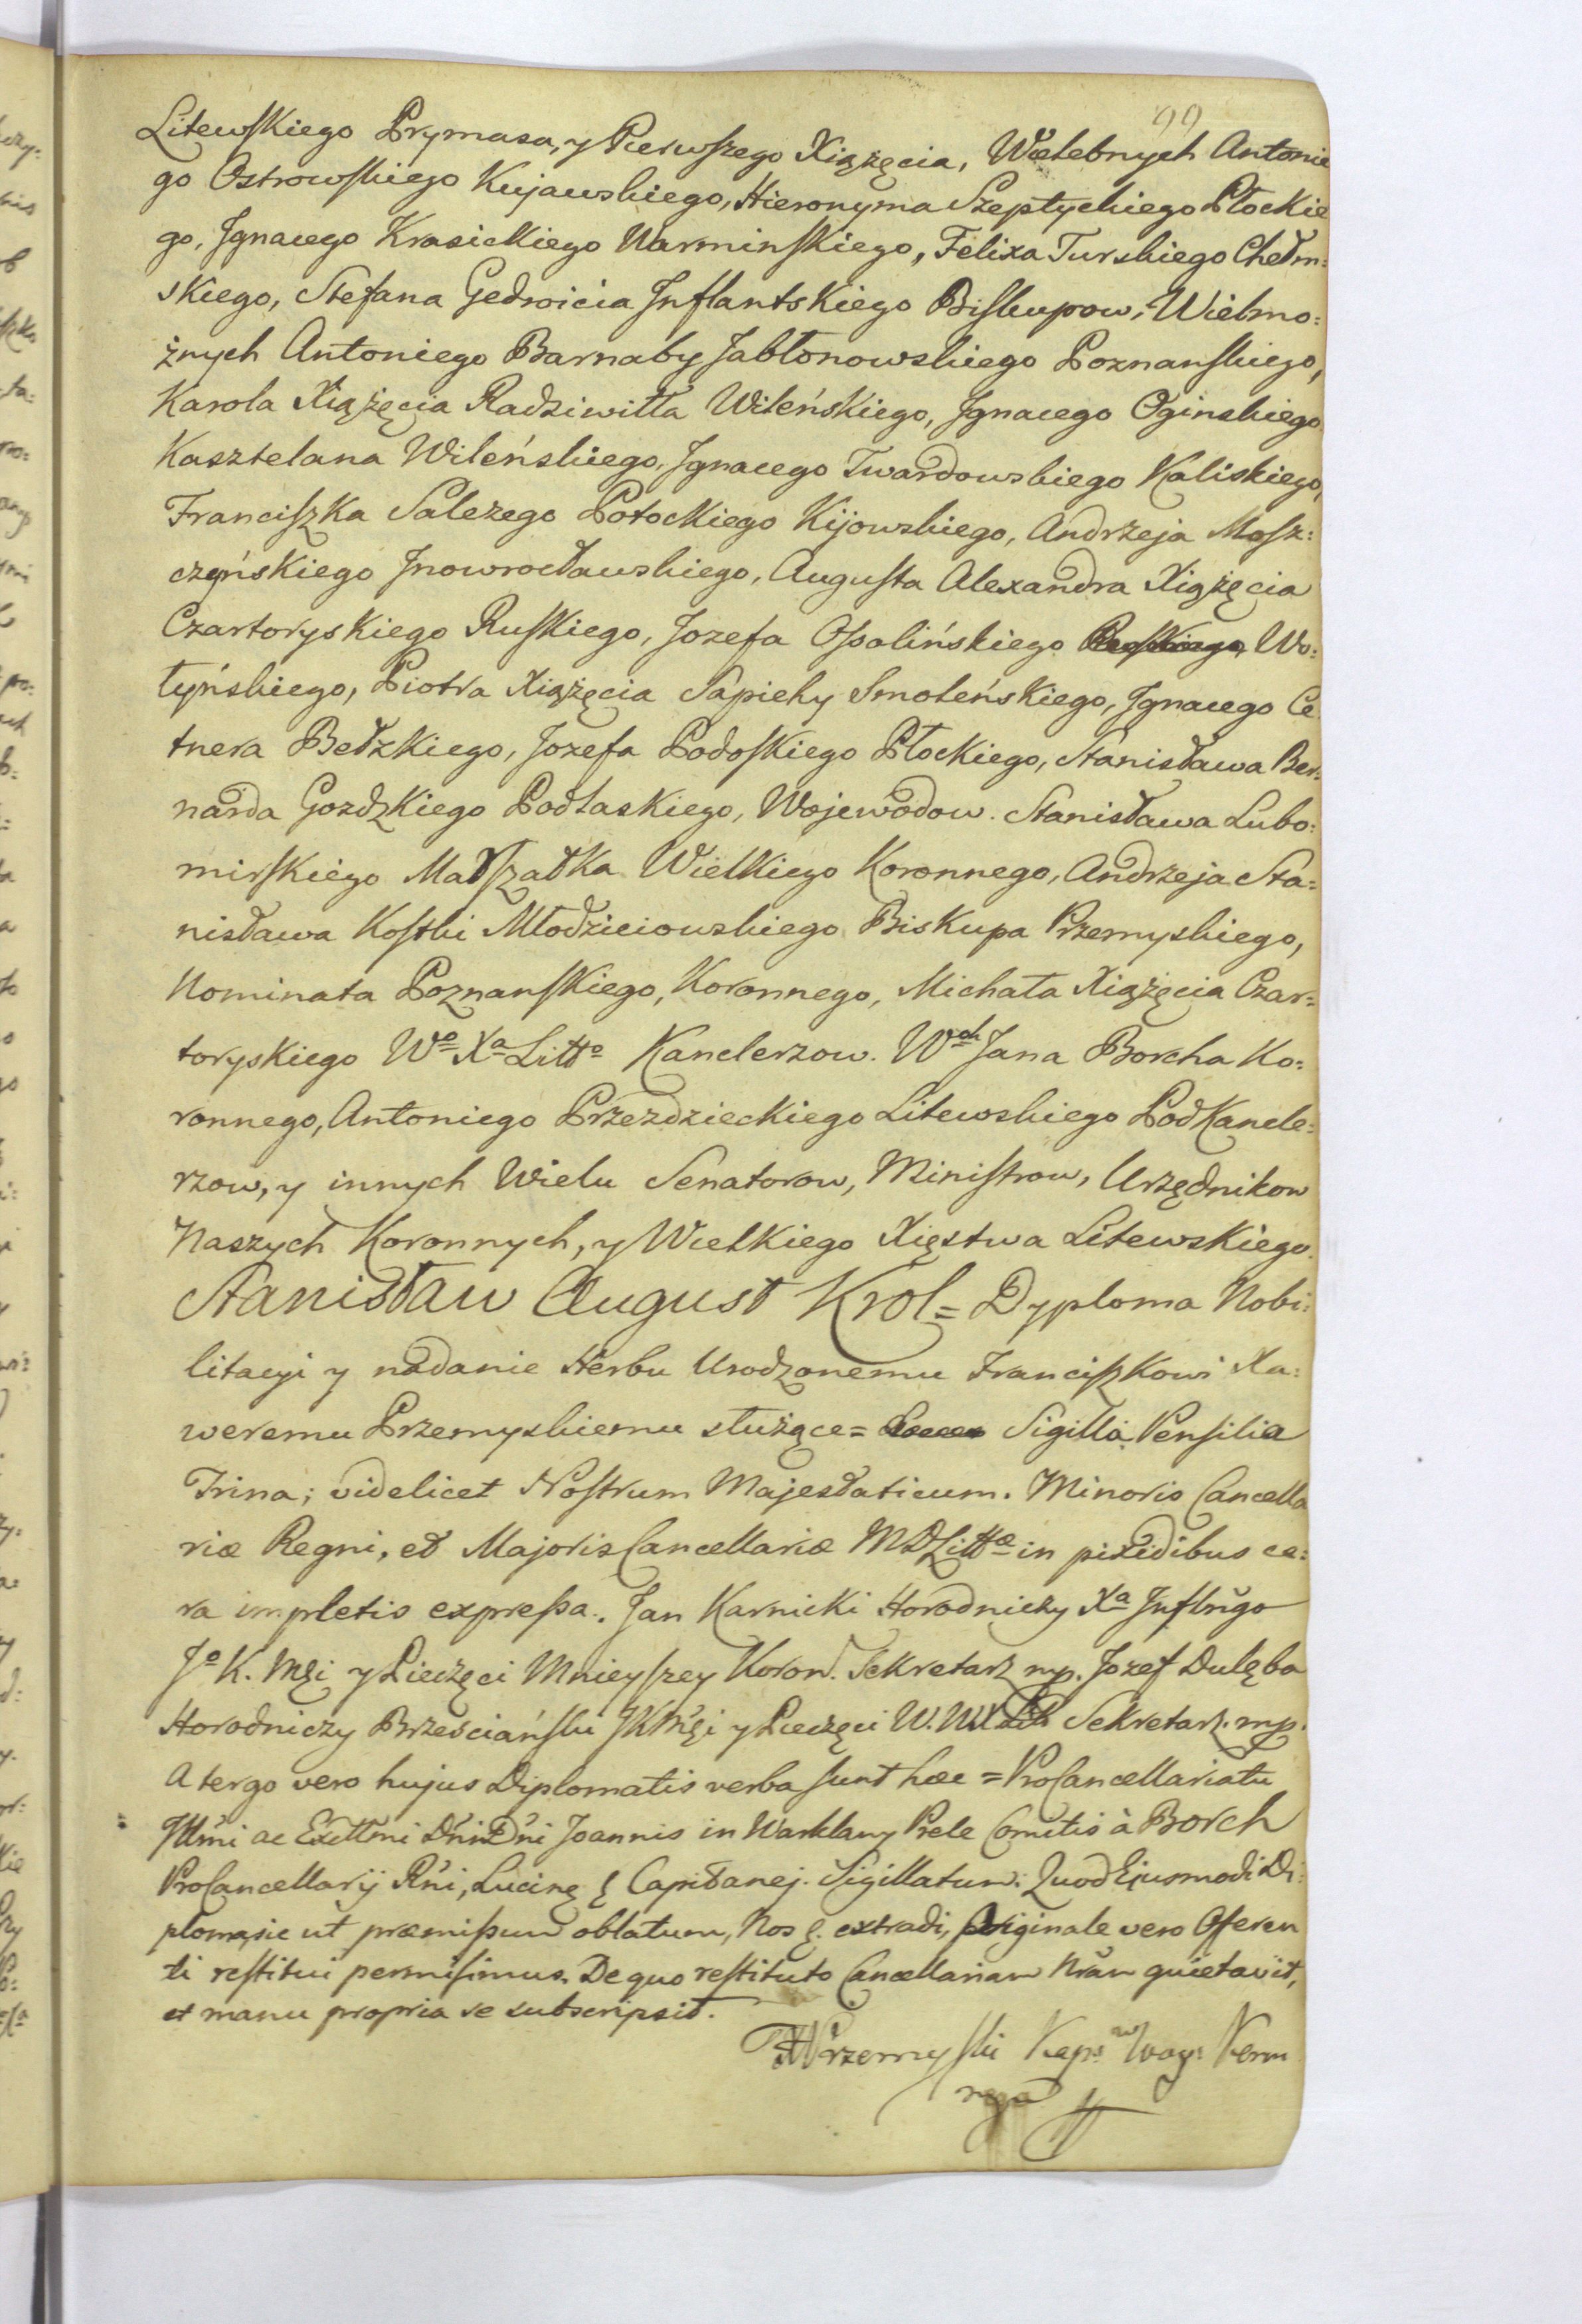 99
Litewskiego Prymasa, y Pierwszego Xiążęcia, Wielebnych Antonie
go Ostrowskiego Kujawskiego, Hieronyma Szeptyckiego Płockie
go, Jgnacego Krasickiego Warminskiego, Felixa Turskiego Chełm:
skiego, Stefana Gedroicia Jnflantskiego Biskupow, Wielmo:
żnych Antoniego Barnaby Jabłonowskiego Poznanskiego,
Karola Xiążęcia Radziwiłła Wileńskiego, Jgnacego Oginskiego
Kasztelana Wileńskiego, Jgnacego Twardowskiego Kaliskiego,
Franciszka Salezego Potockiego Kijowskiego, Andrzeja Mosz:
czeńskiego Jnowrocławskiego, Augusta Alexandra Xiążęcia
Czartoryskiego Ruskiego, Jozefa Ossolińskiego Wo:
łyńskiego, Piotra Xiążęcia Sapiehy Smoleńskiego, Jgnacego Ce
tnera Bełzkiego, Jozefa Podoskiego Płockiego, Stanisława Ber:
narda Gozdzkiego Podlaskiego, Wojewodow. Stanisława Lubo:
mirskiego Marszałka Wielkiego Koronnego, Andrzeja Sta:
nisława Kostki Młodzieiowskiego Biskupa Przemyskiego,
Nominata Poznanskiego, Koronnego, Michała Xiążęcia Czar=
toryskiego Wo Xa Litto Kanclerzow. Wch Jana Borcha Ko:
ronnego, Antoniego Przezdzieckiego Litewskiego Podkancle:
rzow, y innych Wielu Senatorow, Ministrow, Urzędnikow
Naszych Koronnych, y Wielkiego Xięstwa Litewskiego.
Stanisław August Krol = Dyploma Nobi:
litacyi y nadanie Herbu Urodzonemu Franciszkowi Xa:
weremu Przemyskiemu służące = Sigilla Pensilia
Trina; videlicet Nostrum Majestaticum. Minoris Cancella
riæ Regni, et Majoris Cancellariæ MDLittæ in pixidibus ce:
ra impletis expressa. Jan Karnicki Horodniczy Xa Jnflngo
Jo K. Mci y Pieczęci Mnieyszey Koron. Sekretarz mp. Jozef Dulęba
Horodniczy Brześciański JKMci y Pieczęci W. WX Lit. Sekretarz. mp.
A tergo vero hujus Diplomatis verba sunt hæc = ProCancellariatu
Jllmi ac Excllmi Dni Dni Joannis in Warklany Prele Comitis à Borch
ProCancellarij Rni, Lucinę & Capitanej. Sigillatum. Quod Ejusmodi Di:
ploma, sic ut præmissum oblatum, Nos &. extradi, Originale vero Oferen
ti restitui permisimus. De quo restituto Cancellariam Nram quietavit,
et manu propria se subscripsit.
FXPrzemyski Kap: